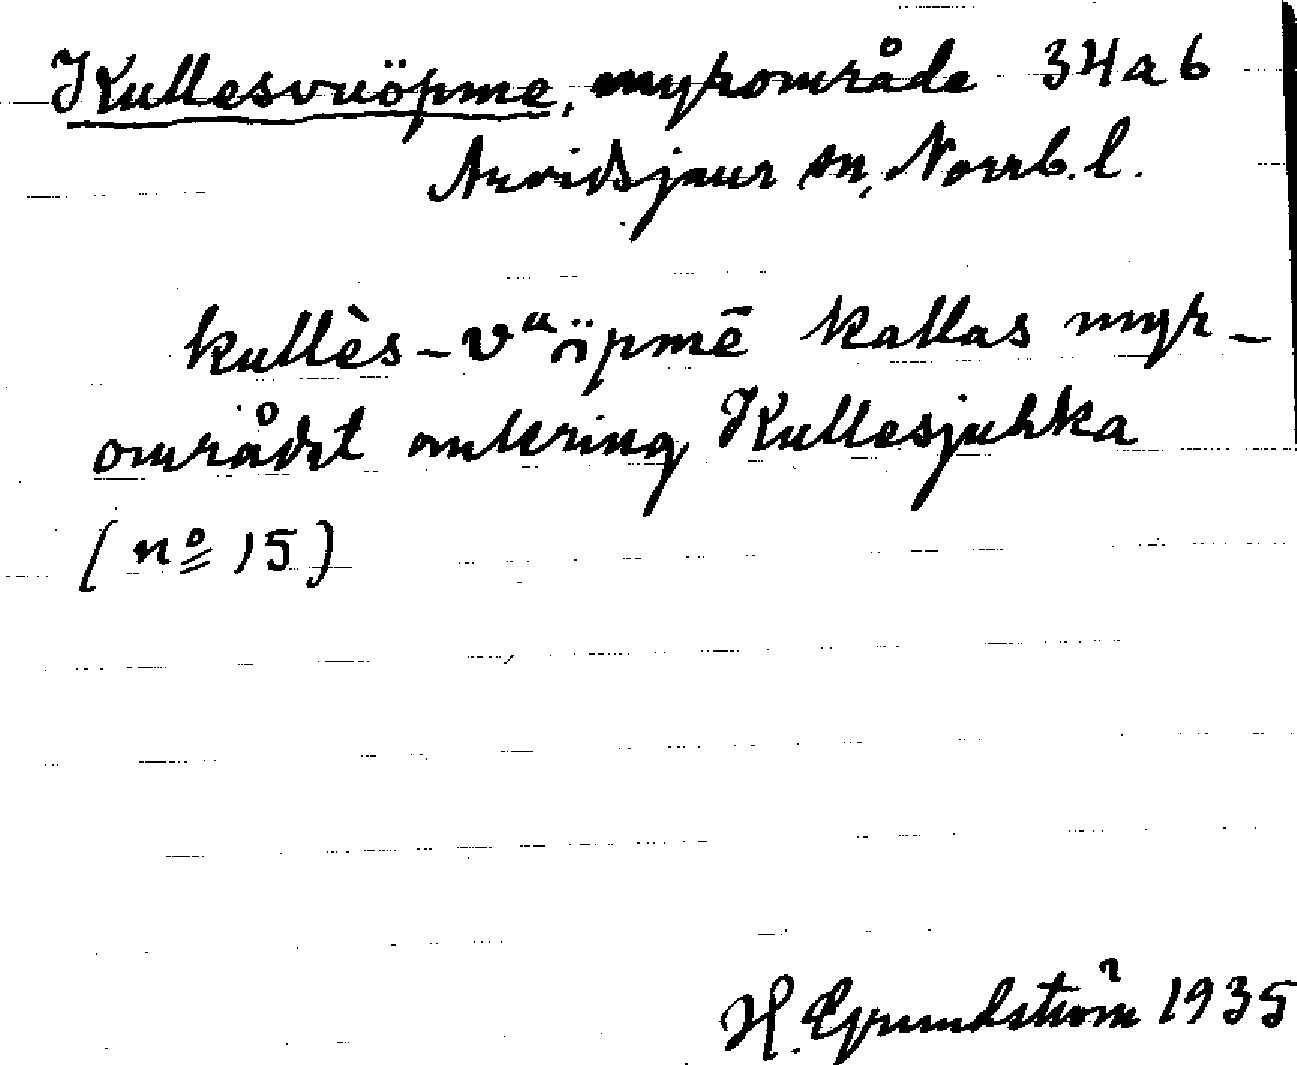 Kullesvuöpme, myrområde 34 a 6
Arvidsjaur sn, Norrb. l.
kullès-vᵘöpmē kallas myr-
området omkring Kullesjuhka
(nº 15)
H. Grundström 1935